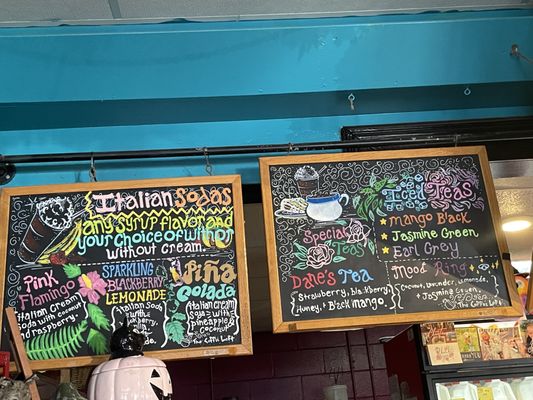 Italian Sodas
any syrup flavor and
your choice of with or
without cream
Pink
Flamingo
Italian Cream
soda with coconut
and raspberry
SPARKLING
BLACKBERRY
LEMONADE
Italian Soda
with
blackberry,
Piña
Colada
Italian Cream
Soda with
pineapple &
coconut
Iced Teas
Mango Black
Jasmine Green
Earl Grey
Special
Teas
Dane's Tea
Strawberry, blk. mango,
Honey, + Black mango.
Mood Ring
Coconut, lavender, lemonade,
+ Jasmine Green